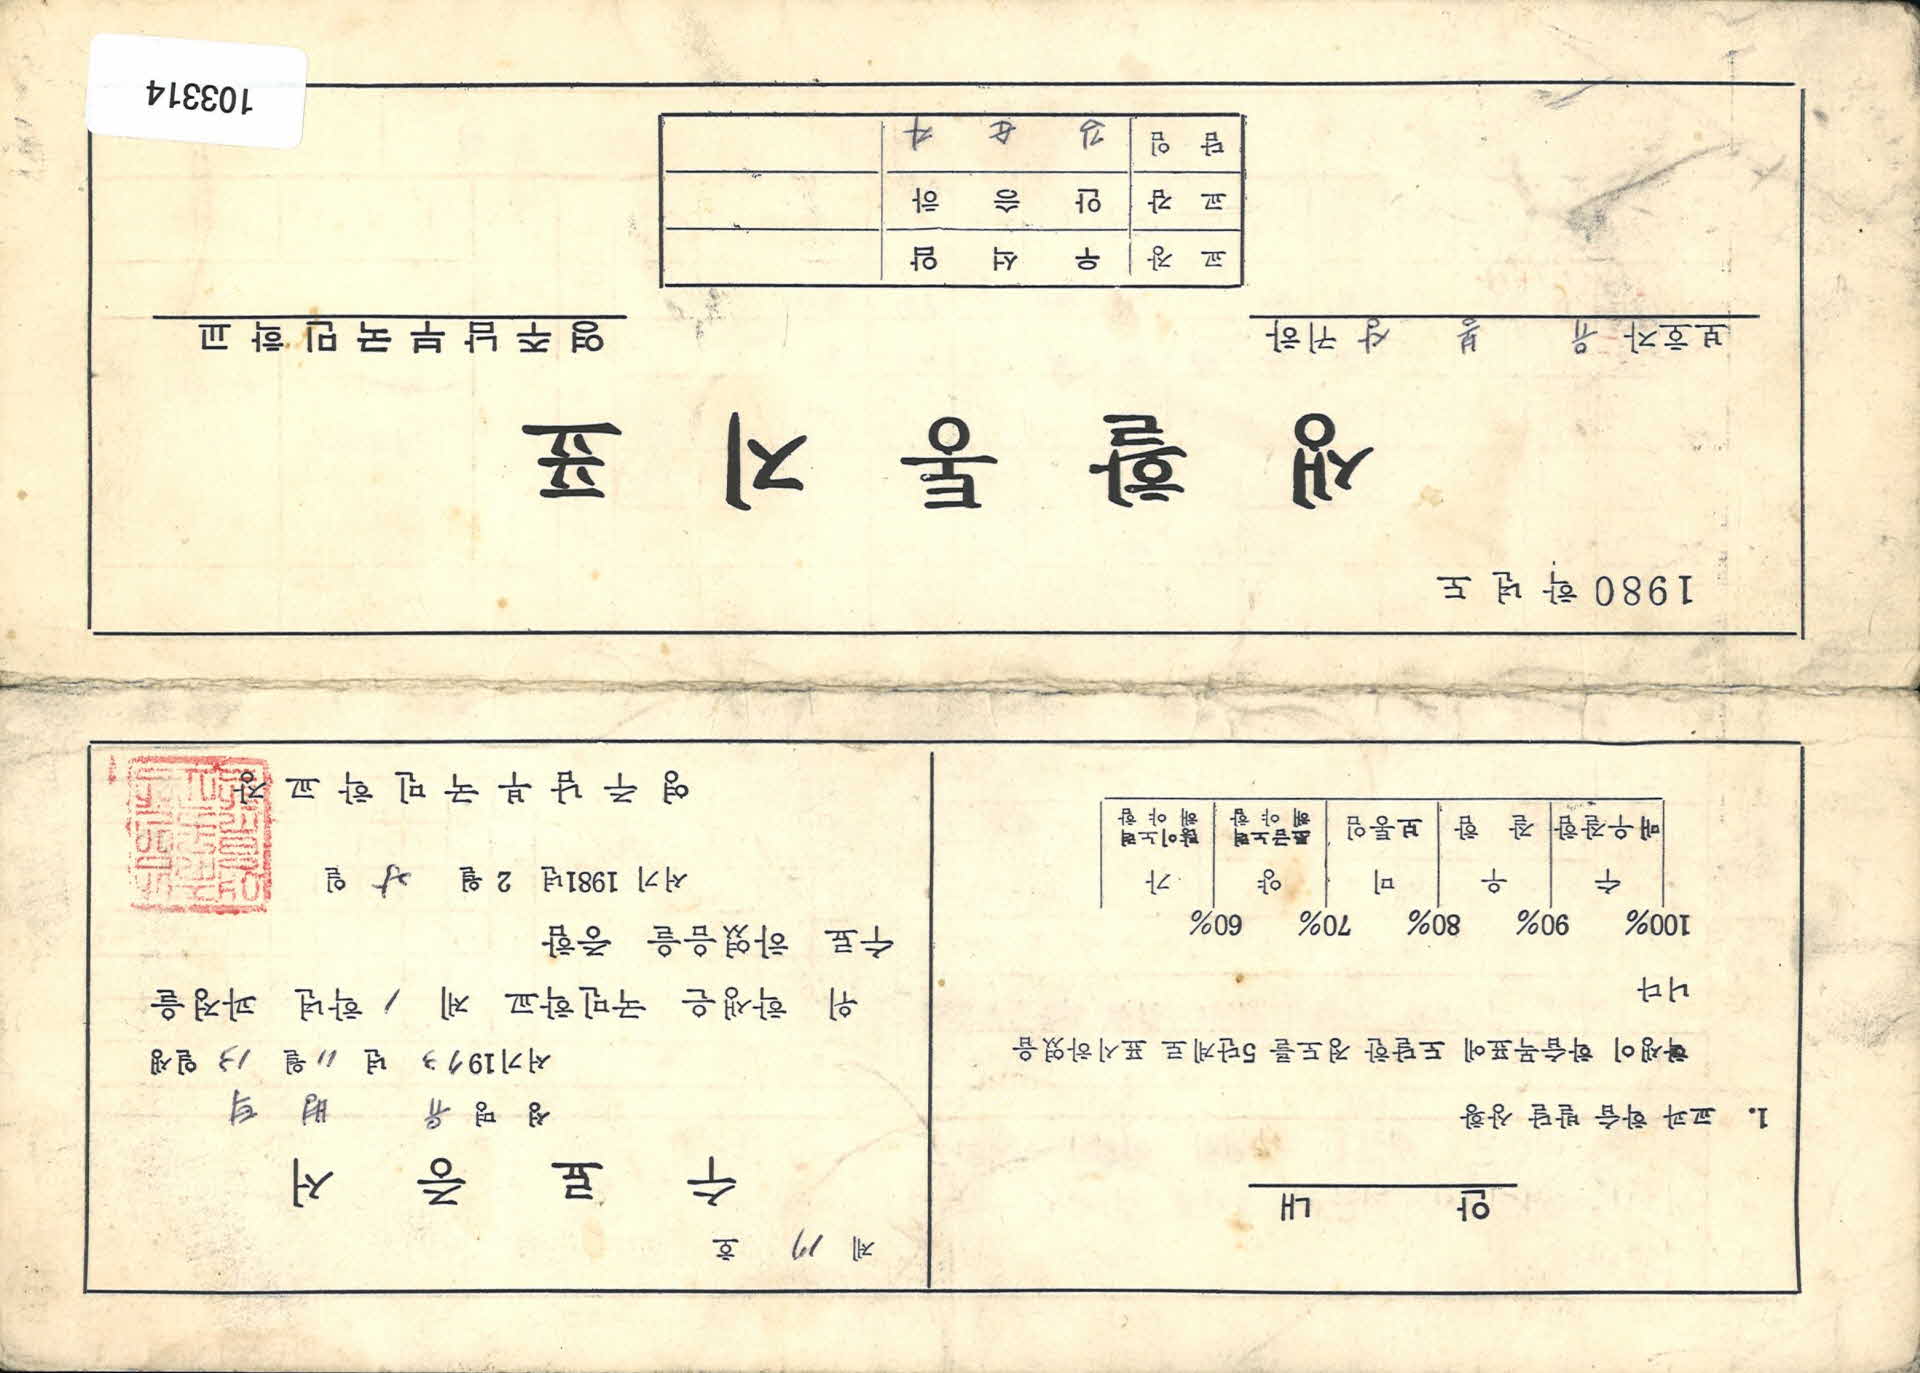 안 내
1. 교과 학습 발달 상황
학생이 학습목표에 도달한 정도를 5단계로 표시하였습
니다
100% 90% 80% 70% 60%
수 우 미 양 가
매우잘함 잘 함 보통임 조금노력해야함 많이노력해야함
제 17 호
수 료 증 서
성 명 유
서기1973 년 11월 13 일생
위 학생은 국민학교 제 1 학년 과정을
수료 하였음을 증함
서기 1981년 2월 일
영주남부국민학교장
1980학년도
생 활 통 지 표
보호자 유 봉 상 귀하
영주남부국민학교
교 장 우 석 암
교 감 안 승 하
담 임 김 순 자
103314